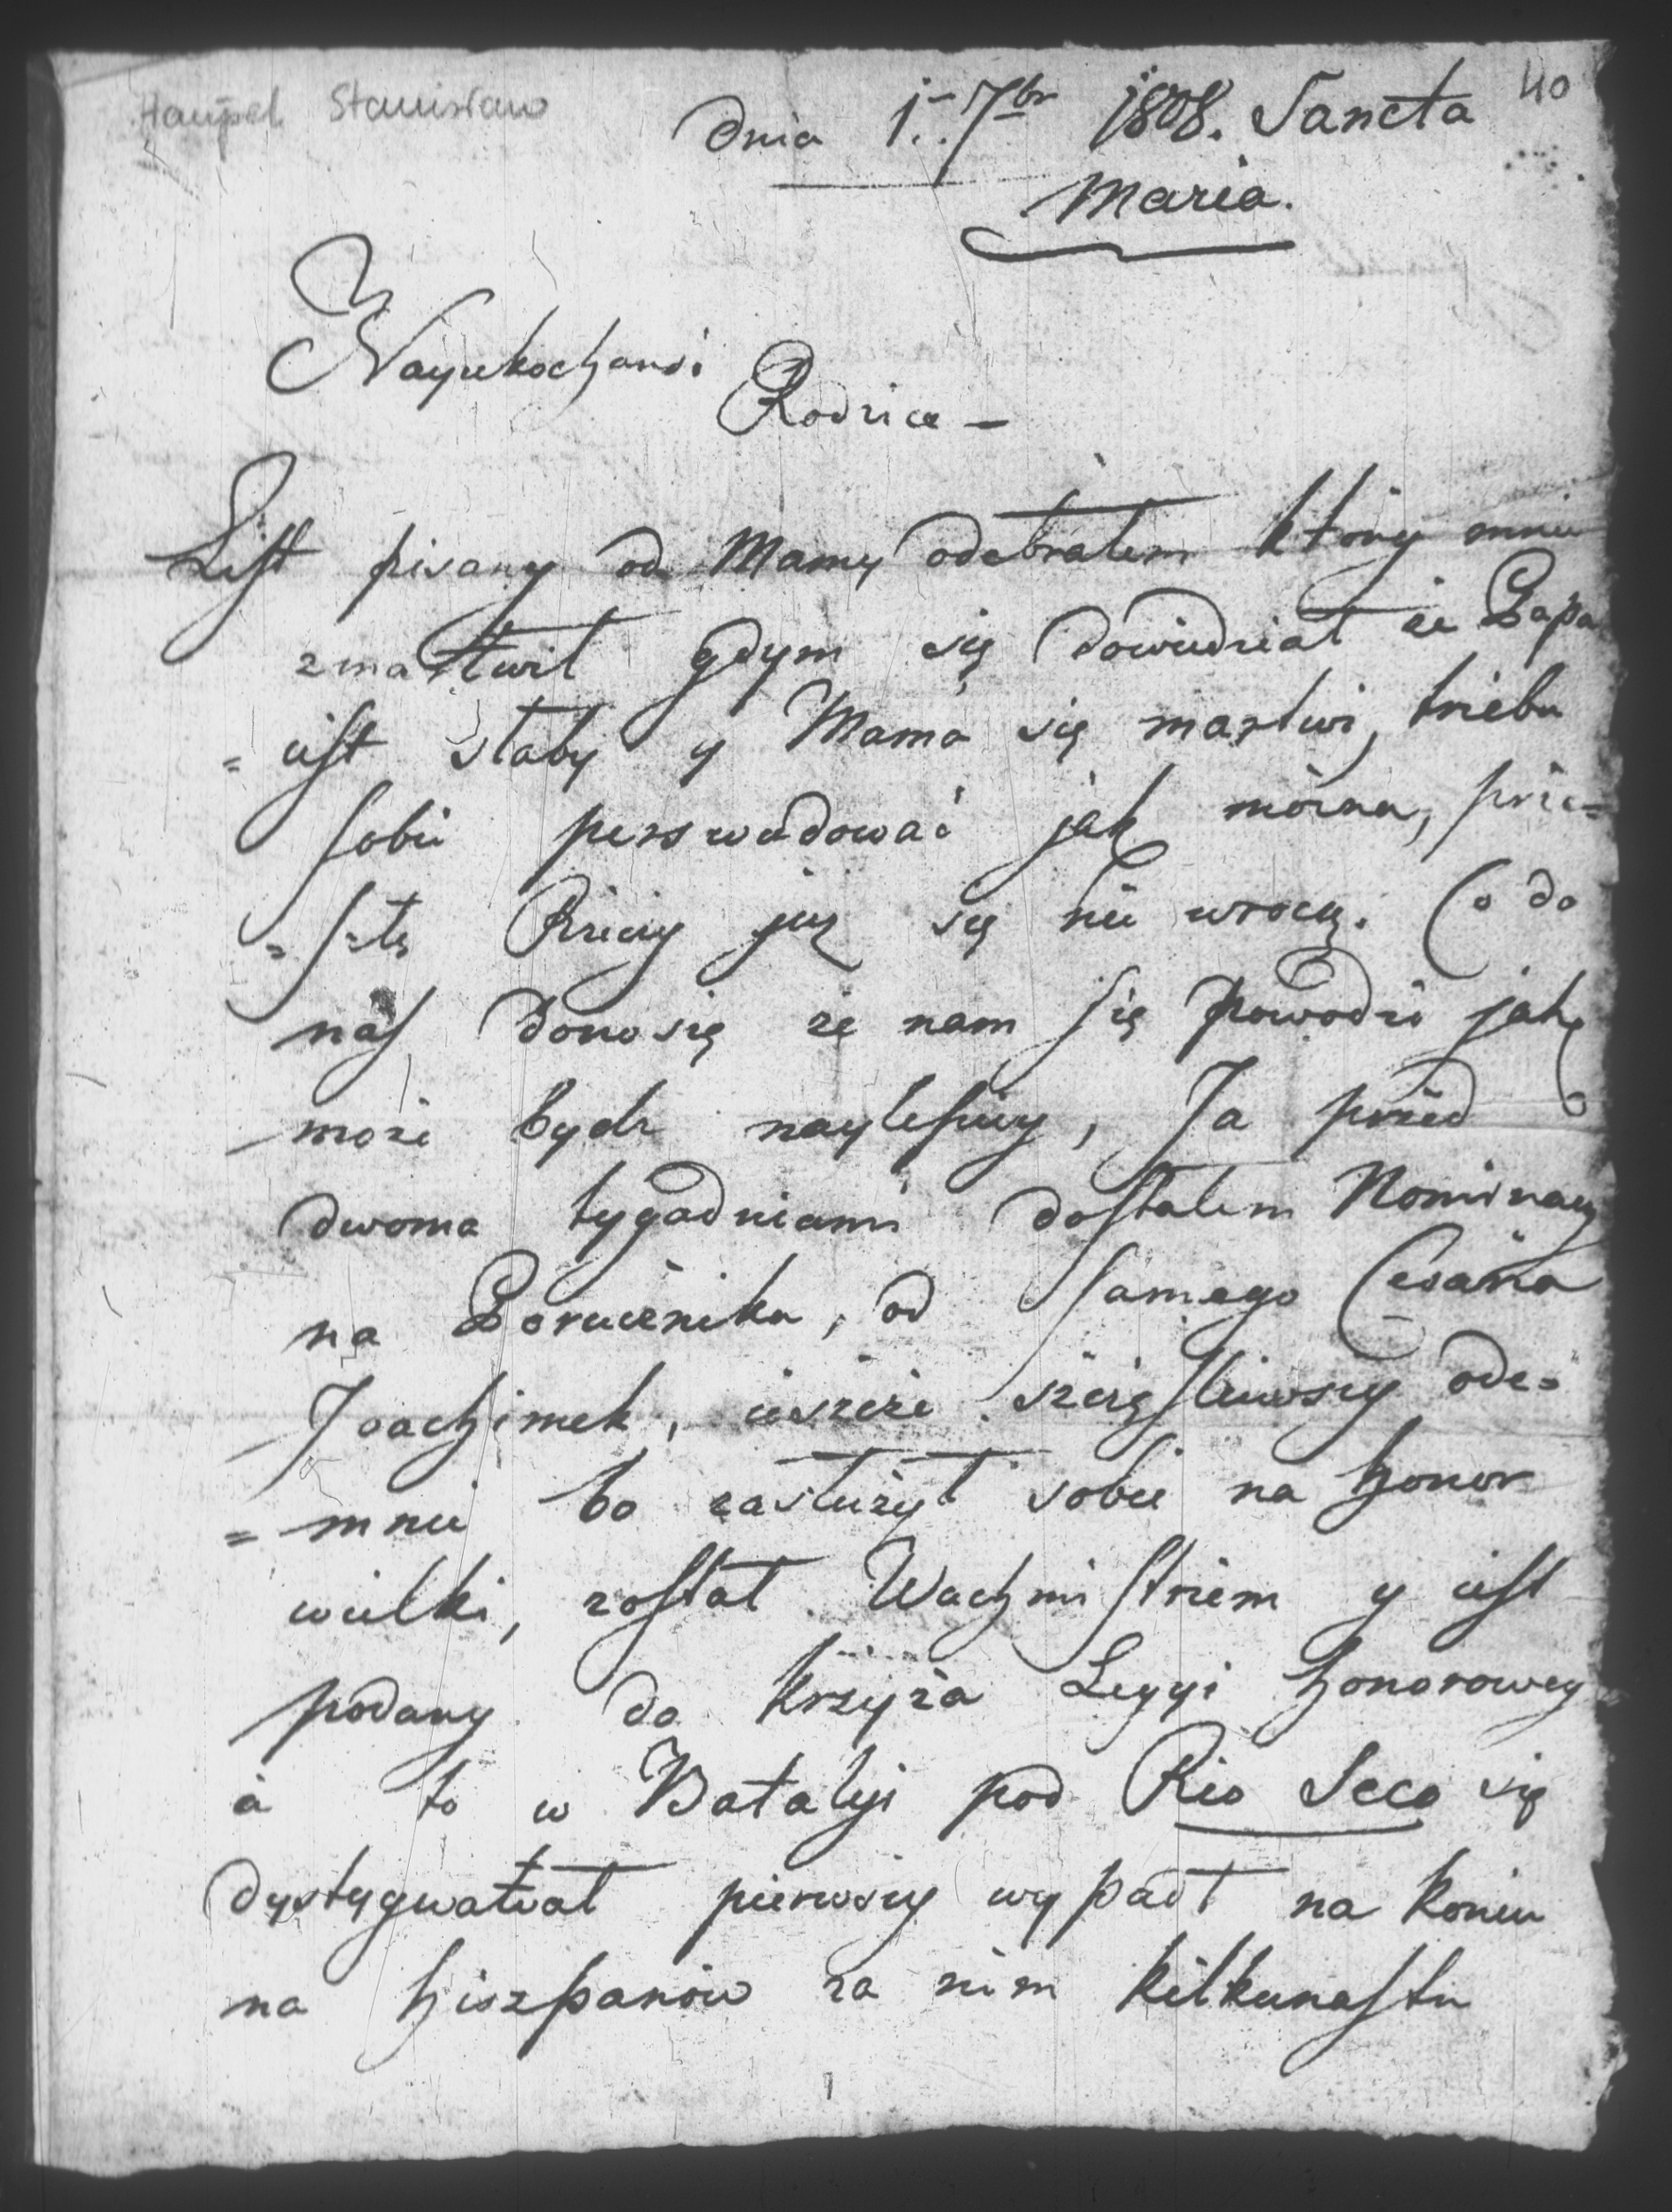 Hempel Stanisław
40
dnia 1. 7br 1808. Sancta
Maria.
Nayukochansi
Rodzice –
List pisany od Mamy odebrałem ktory mnie
zmartwił gdym się dowiedział że Papa
= iest słaby y Mama się martwi, trzeba
sobie perswadować jak można, prze=
= szłe Rzeczy już się nie wrocą. Co do
nas donoszę że nam się powodzi jak
może bydz naylepiey, Ja przed
dwoma tygodniami dostałem Nominacyę
na Porucznika, od samego Cesarza
Joachimek, ieszcze szczęśliwszy ode=
= mnie bo zasłużył sobie na honor
wielki, został Wachmistrzem y iest
podany do krzyża Legyi honorowey
a to w Batalyi pod Rio Seco się
dystygwatwał pierwszy wypadł na koniu
na hiszpanow za nim kilkunastu